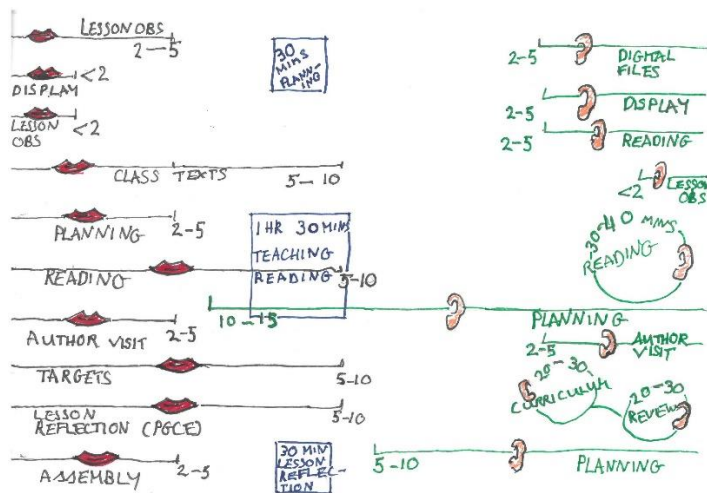 LESSON OBS
2-5
DISPLAY
<2
LESSON
OBS
<2
CLASS TEXTS
5-10
PLANNING
2-5
READING
5-10
AUTHOR VISIT
2-5
TARGETS
5-10
LESSON
REFLECTION (PGCE)
5-10
ASSEMBLY
2-5
30
MINS
PLANN-
ING
1 HR 30 MINS
TEACHING
READING
30 MIN
LESSON
REFLEC-
TION
2-5
DIGITAL
FILES
2-5
DISPLAY
2-5
READING
<2
LESSON
OBS
30-40 MINS
READING
10-15
PLANNING
2-5
AUTHOR
VISIT
20-30
CURRICULUM
20-30
REVIEW
5-10
PLANNING